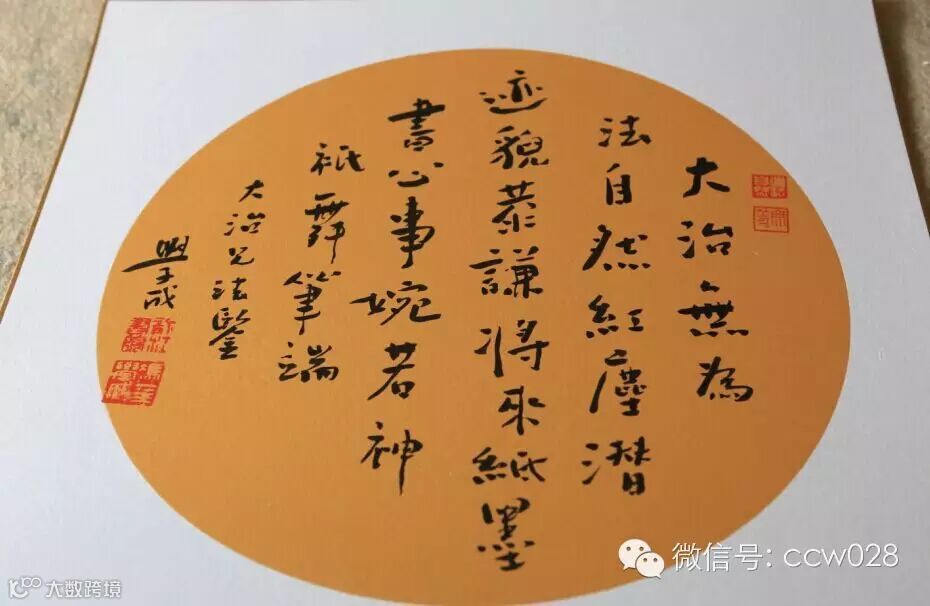 大治無為
法自然紅塵潛
迹貌恭謙將來紙墨
書心事婉若神
祇舞筆端
大治兄法鑒
學成
微信号: ccw028
大数跨境